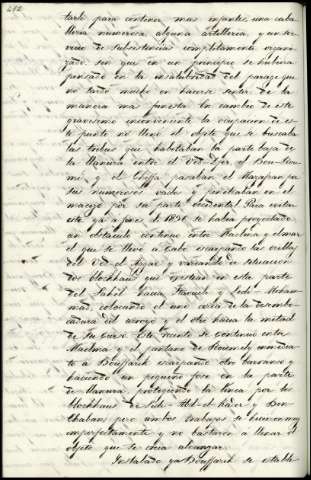 482
tarlo para contener mas infantes, una caba
lleria numerosa, alguna artilleria, y un ser
vicio de subsistencias completamente organi
zado, sin que en un principio se hubiera
pensado en la insalubridad del parage que
no tardó mucho en hacerse sentir de la
manera mas funesta. En cambio de este
gravisimo inconveniente la ocupacion de es
te punto no llenó el objeto que se buscaba
las tribus que habitaban la parte baja de
la llanura entre el Ued-Djer, el Bou-Rou
mi y el Chiffa pasaban el Mazafran por
sus numerosos vados y penetraban en el
macizo por su parte occidental. Para evitar
este ya a fines de 1831 se habia proyectado
un obstáculo continuo entre Maelma y el mar
el que se llevó a cabo escarpando las orillas
del Ued el Agar y variando de situacion
dos blockhaus que existian en esta parte
del Sahel, y Sidi Moham
mad, colocando el uno cerca de la desembo
cadura del arroyo y el otro hacia la mitad
de su curso. Este recinto se continuó entre
Maelma y el camino de inmedia
to a Bouffarik escarpando otro barranco y
haciendo un pequeño foso en la parte
de llanura, protegiendo la linea por los
blockhaus de Sidi Abd-el-Kader y Ben
Chaban; pero ambos trabajos se hicieron muy
imperfectamente y no bastaron a llenar el
objeto que se creia alcanzar.
Instalado ya Bouffarik se estable